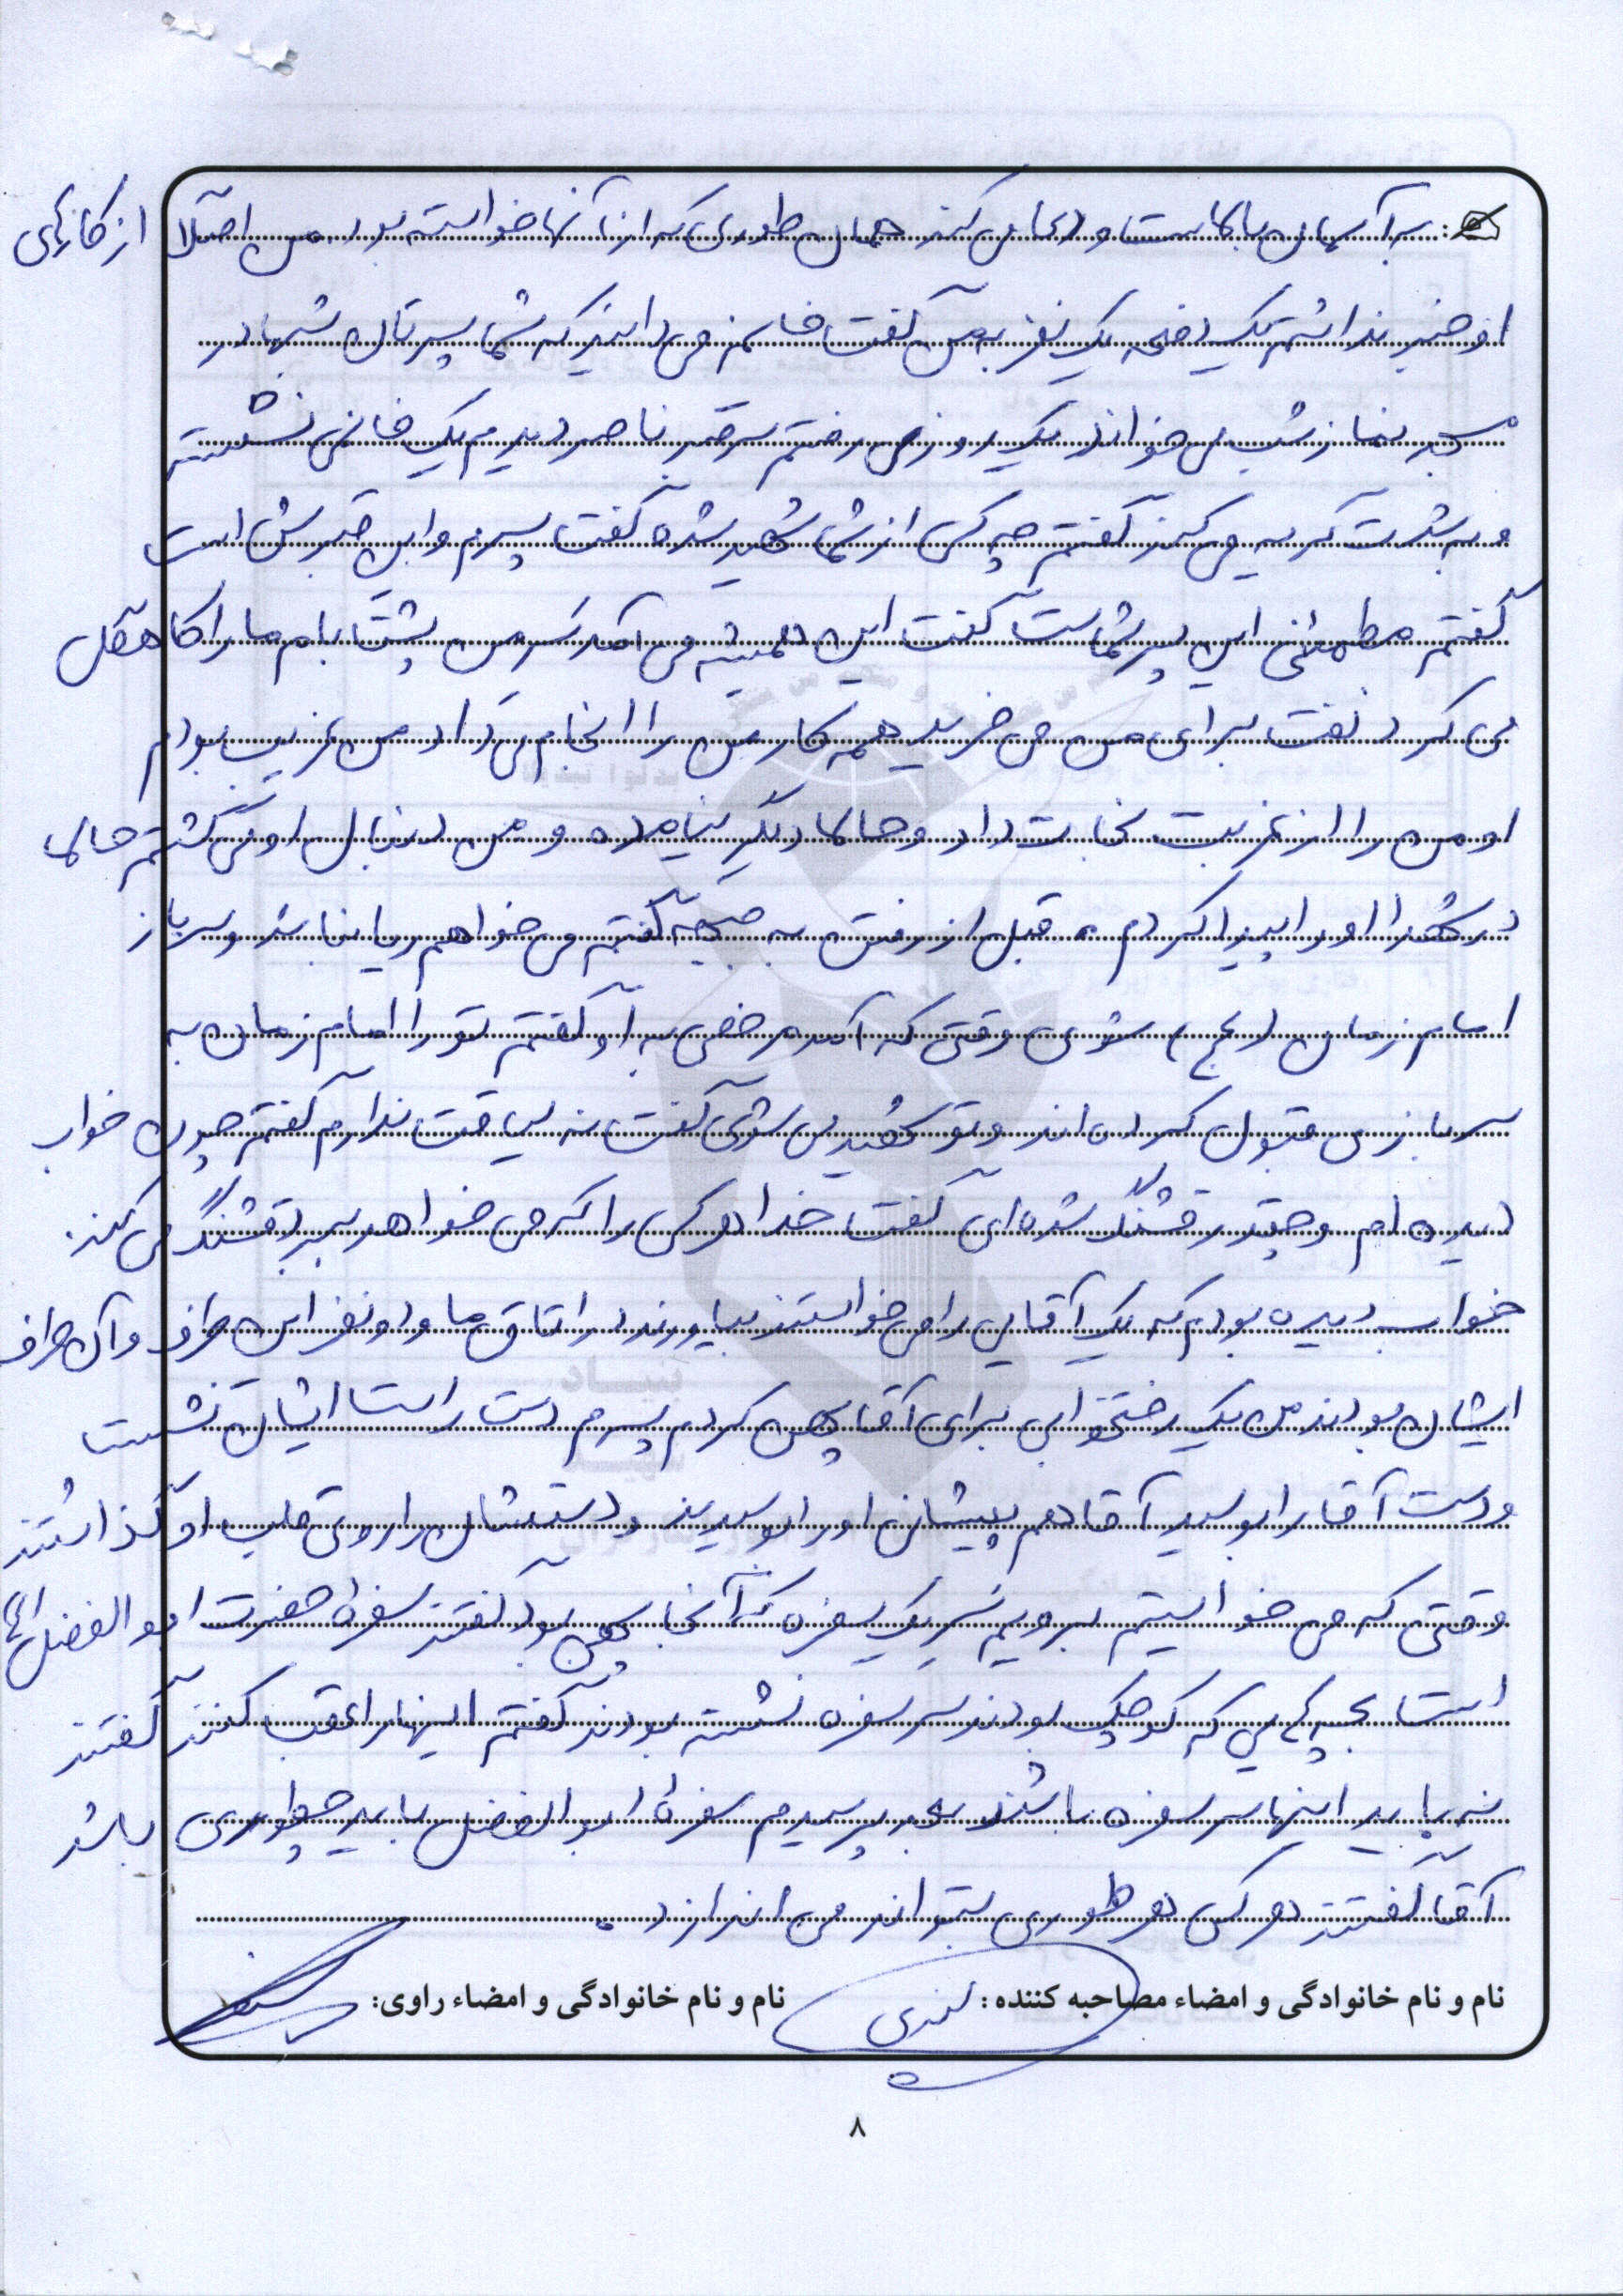 به آسمان بالاست و دعا می کند همان طوری که از آنها خواسته بود. من اصلا از کارهای
او خبر نداشتم یک دفعه یک نفر به من گفت خانم می دانید که شما پسرتان شبها در
مسجد نماز شب می خواند یک روز من رفتم سر قبر ناصر دیدم یک خانمی نشسته
و به شدت گریه می کند گفتم چه کسی از شما شهید شده گفت پسرم و این قبرش است
گفتم مطمئنی این پسر شماست گفت این همیشه می آمد سر من پشت بام ما را کاهگل
می کرد نفت برای من می خرید همه کار من را انجام می داد من غریب بودم
او من را از غربت نجات داد و حالا دیگر نیامده و من دنبال او می گشتم حالا
در شهدا او را پیدا کردم. قبل از رفتن به جبهه گفتم می خواهم ریا نباشد و سرباز
امام زمان (عج) شوی وقتی که آمد مرخصی به او گفتم تو را امام زمان به
سربازی قبول کرده اند و تو شهید می شوی گفت نه لیاقت ندارم گفتم چون خواب
دیده ام و چقدر قشنگ شده ای گفت خدا هر کس را که می خواهد ببرد قشنگ می کند.
خواب دیده بودم که یک آقایی را می خواستند بیاورند در اتاق ما و دو نفر این طرف و آن طرف
ایشان بودند من یک رختخوابی برای آقا پهن کردم پسرم دست راست ایشان نشست
و دست آقا را بوسید آقا هم پیشانی او را بوسیدند و دستشان را روی قلب او گذاشتند
وقتی که می خواستیم برویم سر یک سفره که آنجا پهن بود گفتند سفره حضرت ابوالفضل
است بچه هایی که کوچک بودند سر سفره نشسته بودند گفتم اینها را عقب کنند گفتند
نه باید اینها سر سفره باشند بعد پرسیدم سفره ابوالفضل باید چطوری باشد
آقا گفتند هر کس هر طوری بتواند می اندازد.
نام و نام خانوادگی و امضاء مصاحبه کننده: نام و نام خانوادگی و امضاء راوی:
۸